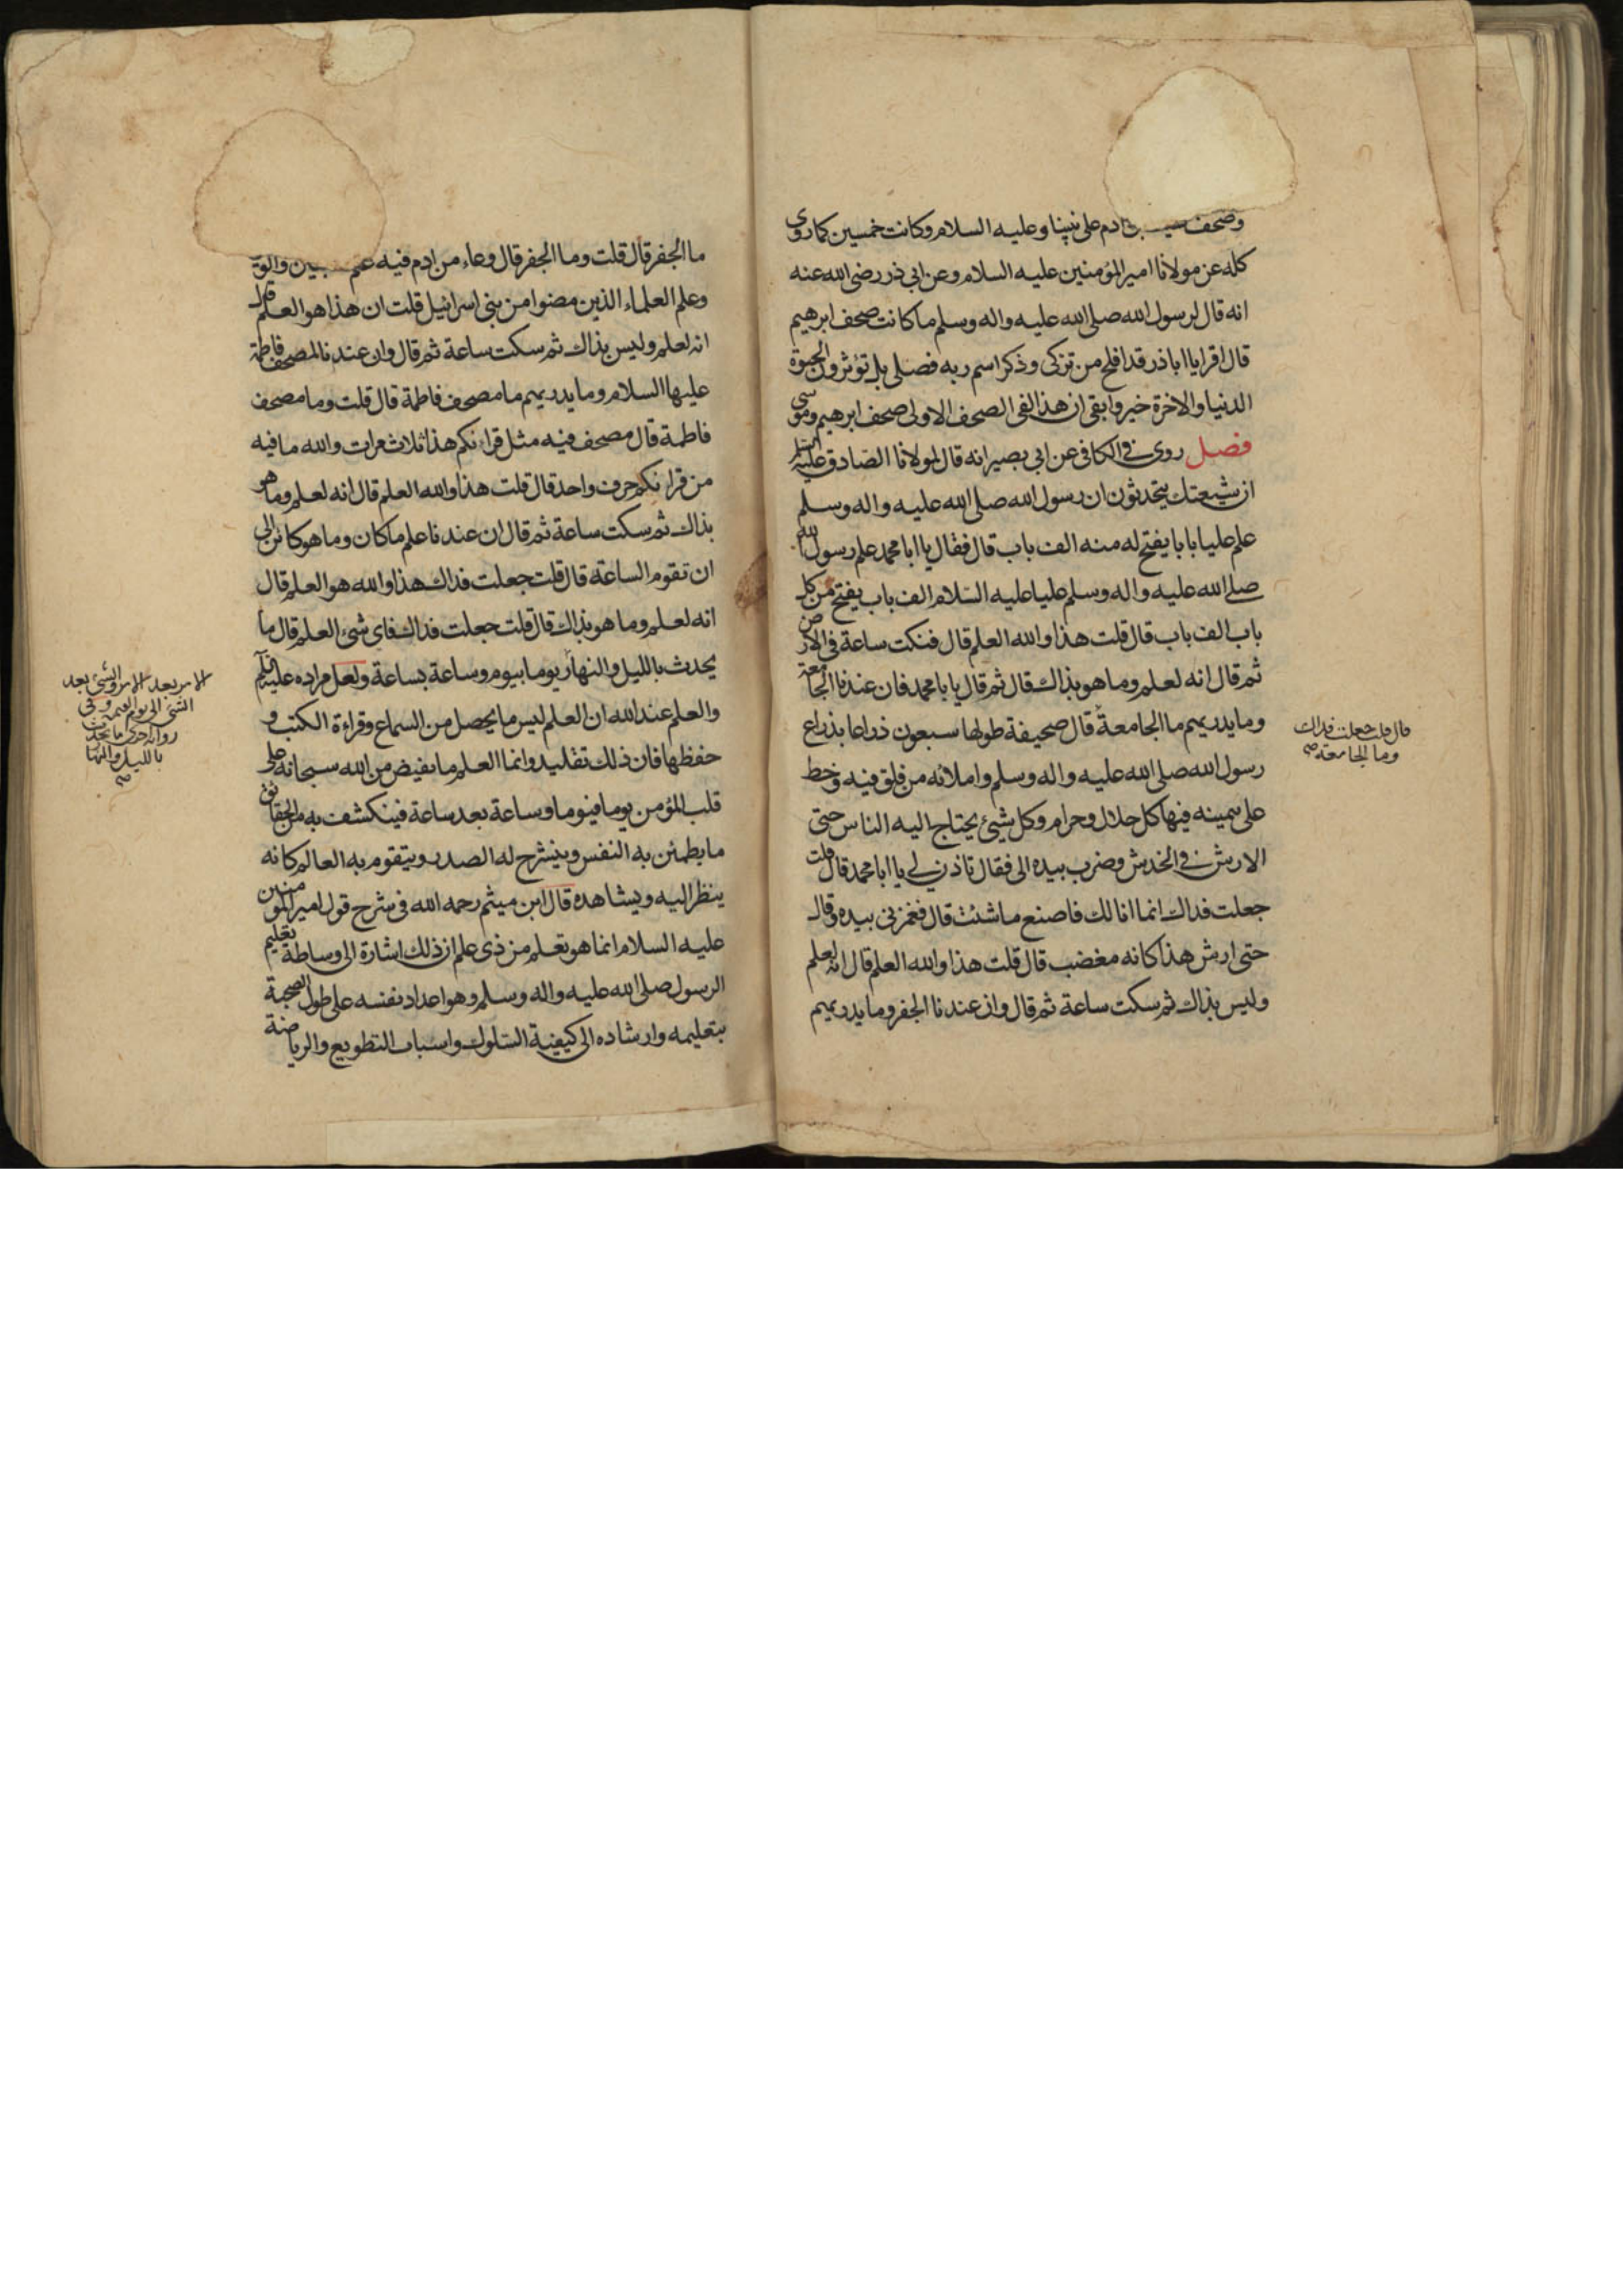 وصحف ادم على نبينا وعليه السلام وكانت خمسين كما روى
كله عن مولانا امير المؤمنين عليه السلام وعن ابي ذر رضي الله عنه
انه قال لرسول الله صلى الله عليه واله وسلم ما كانت صحف ابرهيم
قال اقرا يا اباذر قد افلح من تزكى وذكر اسم ربه فصلى بل تؤثرون الحيوة
الدنيا والاخرة خير وابقى ان هذا لفي الصحف الاولى صحف ابرهيم وموسى
فصل روى في الكافي عن ابي بصير انه قال لمولانا الصادق عليه السلام
ان شيعتك يتحدثون ان رسول الله صلى الله عليه واله وسلم
علم عليا بابا يفتح له منه الف باب قال فقال يا ابا محمد علم رسول الله
صلى الله عليه واله وسلم عليا عليه السلام الف باب يفتح من كل
باب الف باب قال قلت هذا والله العلم قال فنكت ساعة في الارض
ثم قال انه لعلم وما هو بذاك قال ثم قال يا با محمد فان عندنا الجامعة
وما يدريهم ما الجامعة قال صحيفة طولها سبعون ذراعا بذراع
رسول الله صلى الله عليه واله وسلم واملائه من فلق فيه وخط
على بيمينه فيها كل حلال وحرام وكل شيئ يحتاج اليه الناس حتى
الارش في الخدش وضرب بيده الى فقال تاذن لي يا ابا محمد قال قلت
جعلت فداك انما انا لك فاصنع ما شئت قال فغمزني بيده وقال
حتى ارش هذا كانه مغضب قال قلت هذا والله العلم قال انه لعلم
وليس بذاك ثم سكت ساعة ثم قال وان عندنا الجفر وما يدريهم
قال قلت جعلت فداك
وما الجامعة صح
ما الجفر قال قلت وما الجفر قال وعاء من ادم فيه علم
وعلم العلماء الذين مضوا من بني اسرائيل قلت ان هذا هو العلم قال
انه لعلم وليس بذاك ثم سكت ساعة ثم قال وان عندنا لمصحف فاطمة
عليها السلام وما يدريهم ما مصحف فاطمة قال قلت وما مصحف
فاطمة قال مصحف فيه مثل قرانكم هذا ثلاث مرات والله ما فيه
من قرانكم حرف واحد قال قلت هذا والله العلم قال انه لعلم وما هو
بذاك ثم سكت ساعة ثم قال ان عندنا علم ما كان وما هو كائن الى
ان تقوم الساعة قال قلت جعلت فداك هذا والله هو العلم قال
انه لعلم وما هو بذاك قال قلت جعلت فداك فاي شئ العلم قال ما
يحدث بالليل والنهار يوما بيوم وساعة بساعة ولعل مراده عليه السلام
والعلم عند الله ان العلم ليس ما يحصل من السماع وقراءة الكتب و
حفظها فان ذلك تقليد وانما العلم ما يفيض من الله سبحانه على
قلب المؤمن يوما فيوما وساعة بعد ساعة فينكشف به من الحقائق
ما يطمئن به النفس وينشرح له الصدر ويتقوم به العالم كانه
ينظر اليه ويشاهده قال ابن ميثم رحمه الله في شرح قول امير المؤمنين
عليه السلام انما هو تعلم من ذي علم ان ذلك اشارة الى وساطة تعليم
الرسول صلى الله عليه واله وسلم وهو اعداد نفسه على طول الصحبة
بتعليمه وارشاده الى كيفية السلوك واسباب التطويع والرياضة
الامر بعد الامر والشئ بعد
الشئ الى يوم القيمة وفي
رواية اخرى ما يحدث
بالليل والنهار
صح